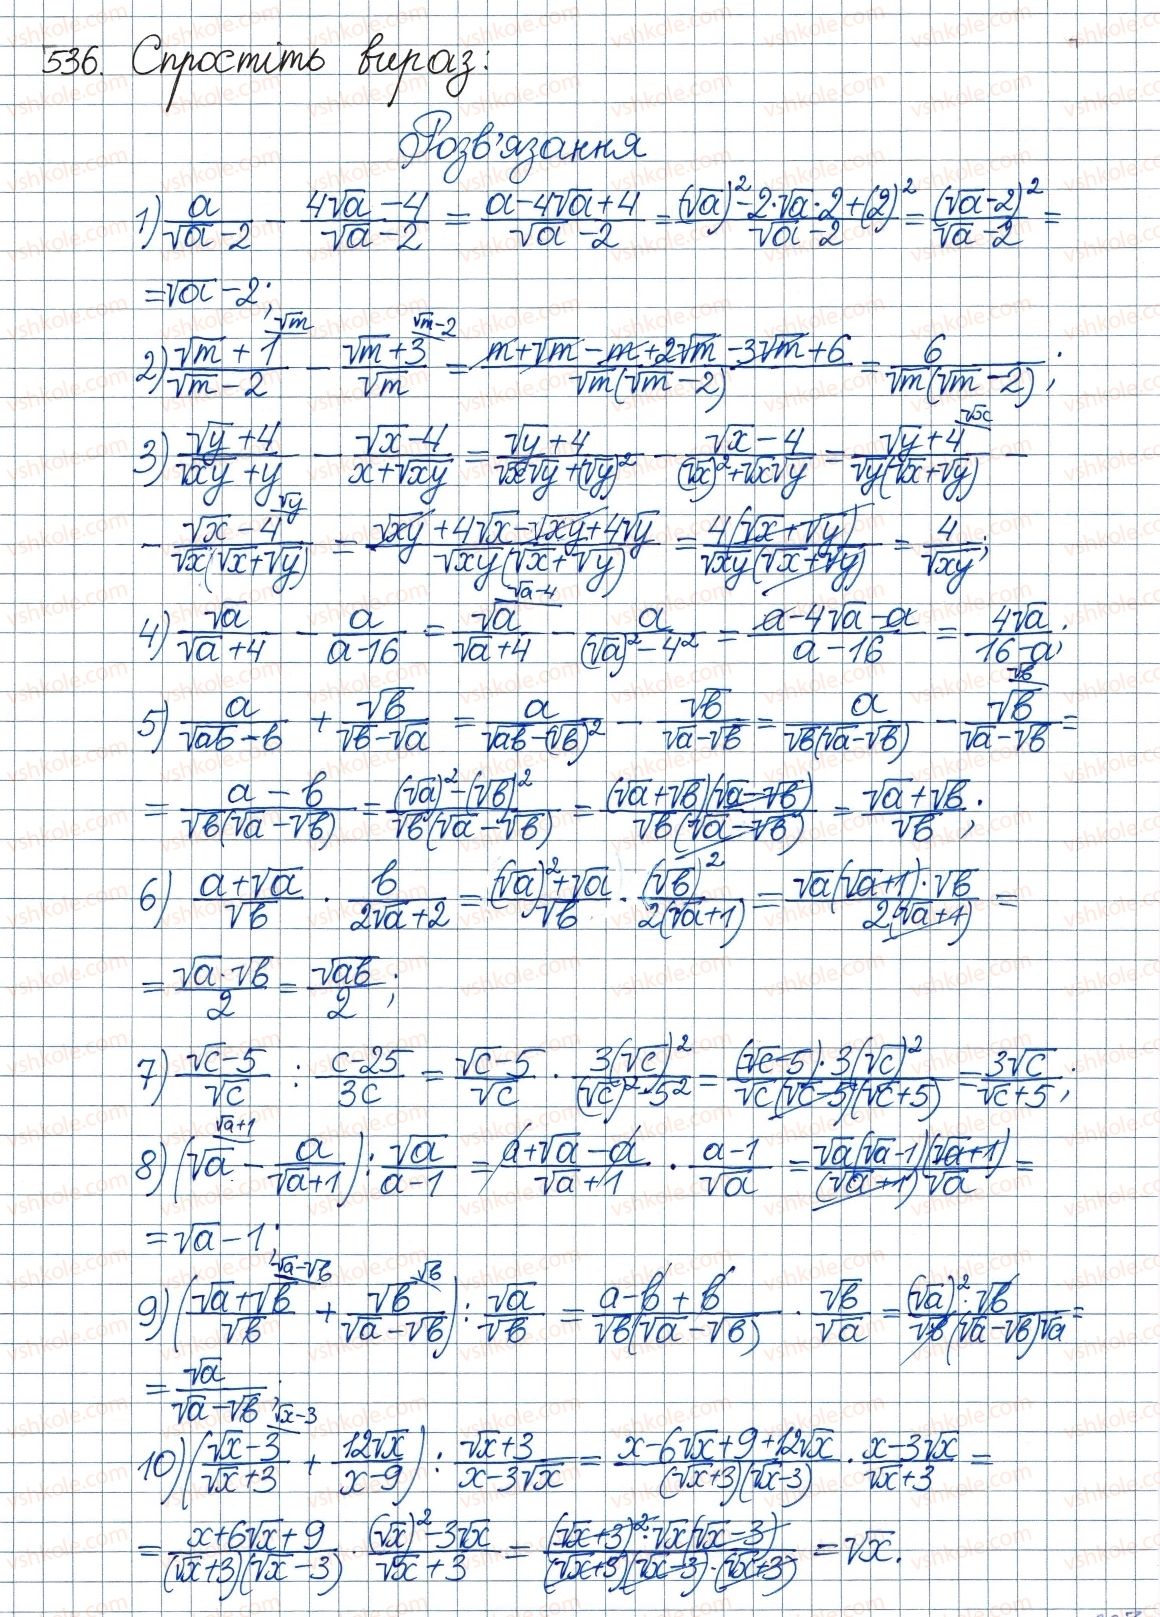 536. Спростіть вираз:
Розв'язання
1) a/(√a-2) - (4√a-4)/(√a-2) = (a-4√a+4)/(√a-2) = ((√a)²-2·√a·2+(2)²)/(√a-2) = (√a-2)²/(√a-2) =
= √a-2;
2) (√m+1)/(√m-2) √m - (√m+3)/√m √m-2 = (m+√m-m+2√m-3√m+6)/(√m(√m-2)) = 6/(√m(√m-2));
3) (√y+4)/(√xy+y) - (√x-4)/(x+√xy) = (√y+4)/(√x√y+(√y)²) - (√x-4)/((√x)²+√x√y) = (√y+4)/(√y(√x+√y)) √x -
- (√x-4)/(√x(√x+√y)) √y = (√xy+4√x-√xy+4√y)/(√xy(√x+√y)) = 4(√x+√y)/(√xy(√x+√y)) = 4/√xy;
4) √a/(√a+4) - a/(a-16) = √a/(√a+4) √a-4 - a/((√a)²-4²) = (a-4√a-a)/(a-16) = 4√a/(16-a);
5) a/(√ab-b) + √b/(√b-√a) = a/(√ab-(√b)²) - √b/(√a-√b) = a/(√b(√a-√b)) - √b/(√a-√b) √b =
= (a-b)/(√b(√a-√b)) = ((√a)²-(√b)²)/(√b(√a-√b)) = (√a+√b)(√a-√b)/(√b(√a-√b)) = (√a+√b)/√b;
6) (a+√a)/√b · b/(2√a+2) = ((√a)²+√a)/√b · (√b)²/(2(√a+1)) = √a(√a+1)·√b/(2(√a+1)) =
= √a·√b/2 = √ab/2;
7) (√c-5)/√c : (c-25)/3c = (√c-5)/√c · 3(√c)²/((√c)²-5²) = (√c-5)·3(√c)²/(√c(√c-5)(√c+5)) = 3√c/(√c+5);
8) (√a √a+1 - a/(√a+1)) : √a/(a-1) = (a+√a-a)/(√a+1) · (a-1)/√a = √a(√a-1)(√a+1)/((√a+1)√a) =
= √a-1;
9) ((√a+√b)/√b √a-√b + √b/(√a-√b) √b) : √a/√b = (a-b+b)/(√b(√a-√b)) · √b/√a = (√a)²·√b/(√b(√a-√b)√a) =
= √a/(√a-√b);
10) ((√x-3)/(√x+3) √x-3 + 12√x/(x-9)) : (√x+3)/(x-3√x) = (x-6√x+9+12√x)/((√x+3)(√x-3)) · (x-3√x)/(√x+3) =
= (x+6√x+9)/((√x+3)(√x-3)) · ((√x)²-3√x)/(√x+3) = (√x+3)²·√x(√x-3)/((√x+3)(√x-3)·(√x+3)) = √x.